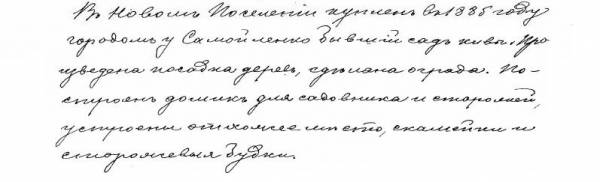 Въ Новомъ Поселеніи купленъ въ 1885 году
городомъ у Самойленко бывшій садъ. Про
изведена посадка деревъ, сдѣлана ограда. По-
строенъ домикъ для садовника и сторожей,
устроены отхожее мѣсто, скамейки и
сторожевыя будки.